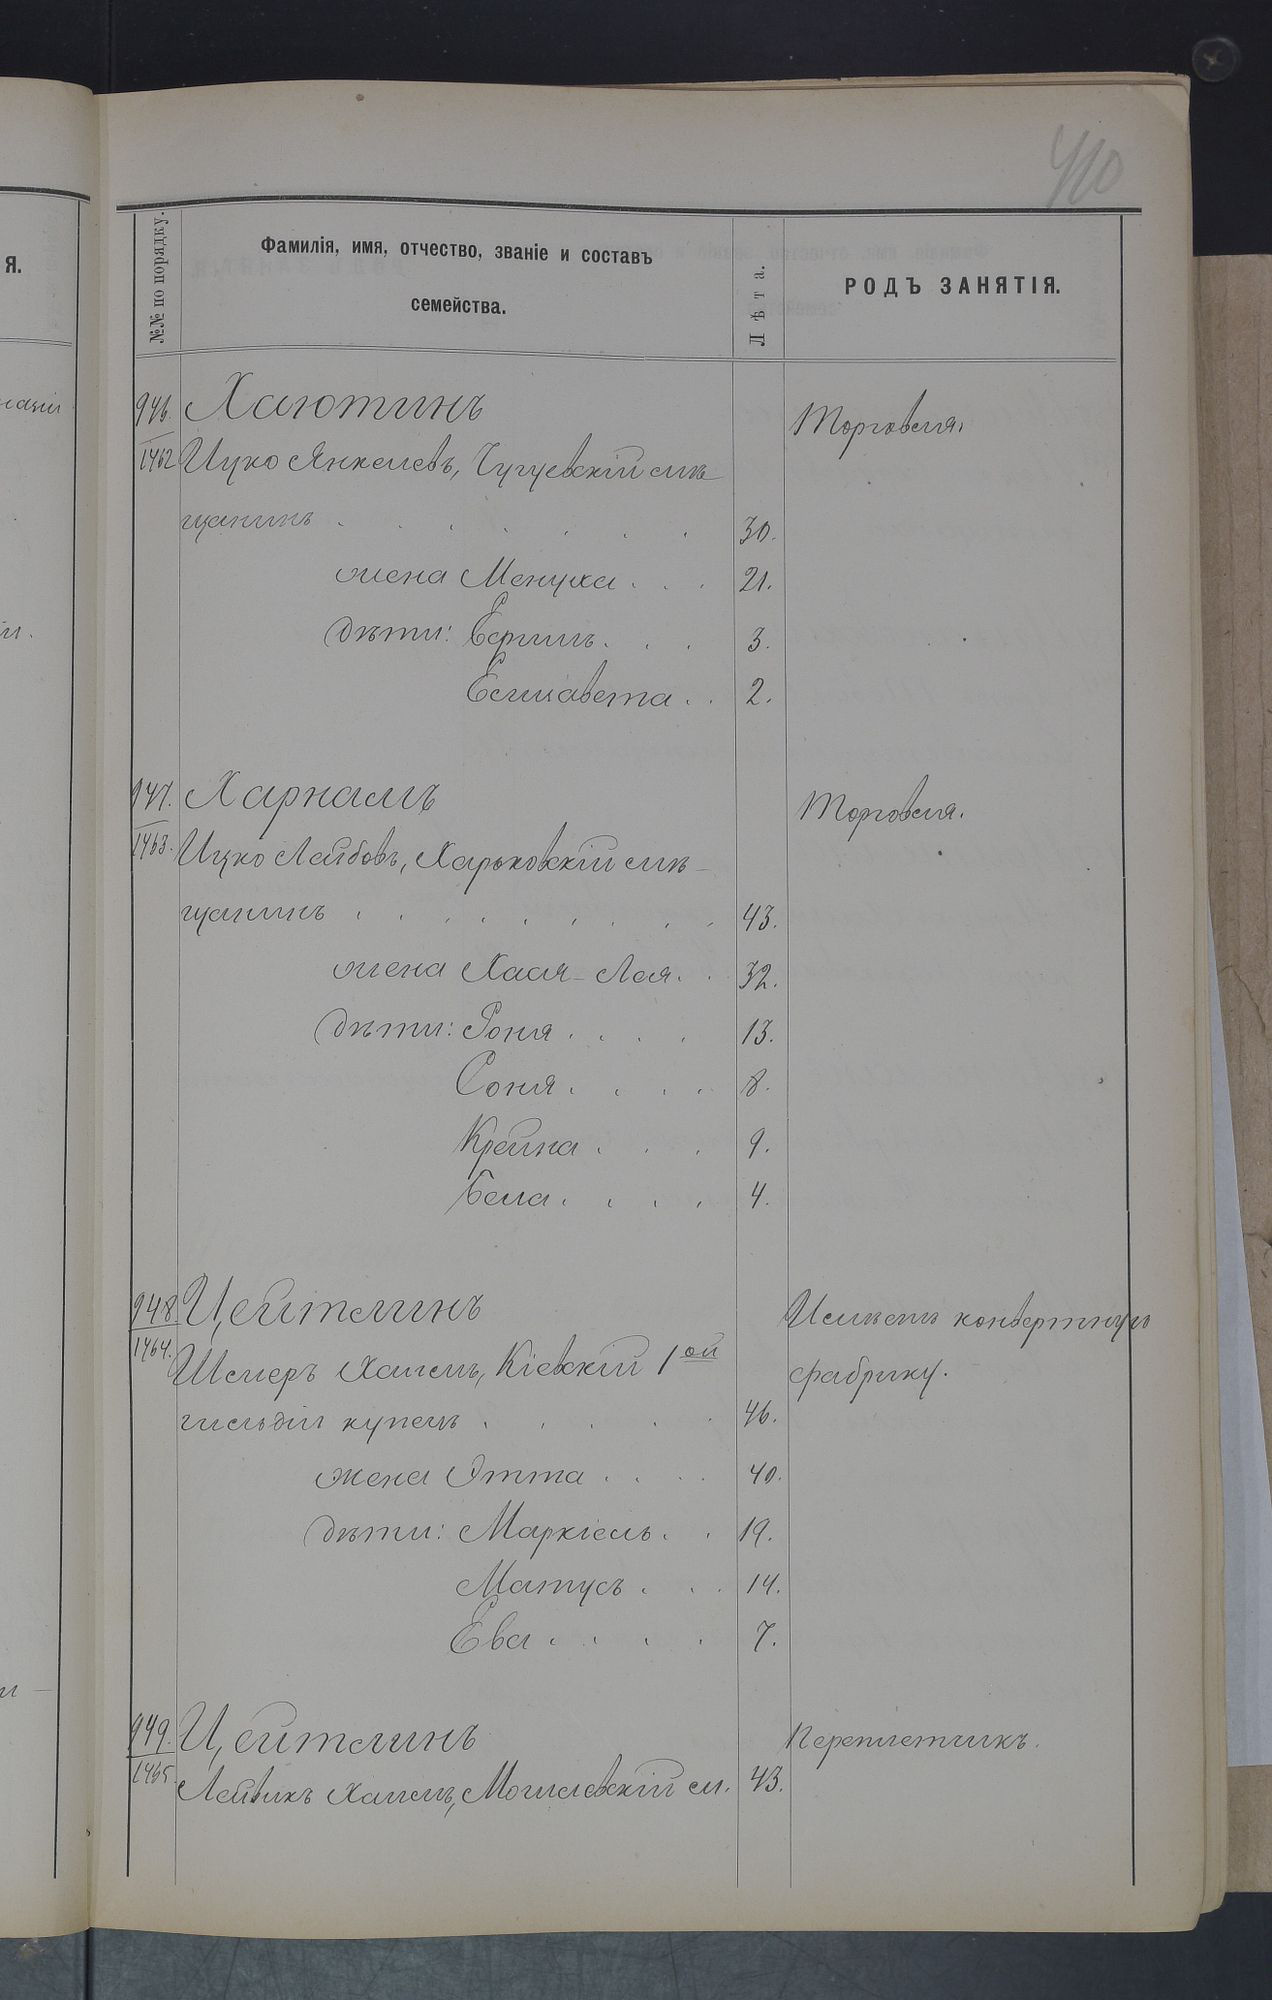 410
№№ по порядку.
Фамилія, имя, отчество, званіе и составъ
семейства.
Лѣта.
РОДЪ ЗАНЯТІЯ.
Я.
946. Хаютинъ Торговля.
1462 Ицко Янкелевъ, Чугуевскій мѣ-
щанинъ . . . . . . 30.
жена Менуха . . . 21.
дѣти: Берлинъ . . . 3.
Елизавета . . 2.
947. Харнамъ Торговля.
1463. Ицко Лейбовъ, Харьковскій мѣ-
щанинъ . . . . . . . . 43.
жена Хася-Лея . . 32.
дѣти: Роня . . . . 13.
Соня . . . . 8.
Крейна . . . 9.
Бела . . . . 4.
948 Цейтлинъ Имѣетъ конвертную
1464. Шмеръ Хаимъ, Кіевскій 1ой фабрику.
гильдіи купецъ . . . . . 46.
жена Этта . . . . 40.
дѣти: Маркіель . . 19.
Матусъ . . . 14.
Ева . . . . 7.
949. Цейтлинъ Переплетчикъ.
1465. Лейвикъ Хаимъ, Могилевскій м. 43.